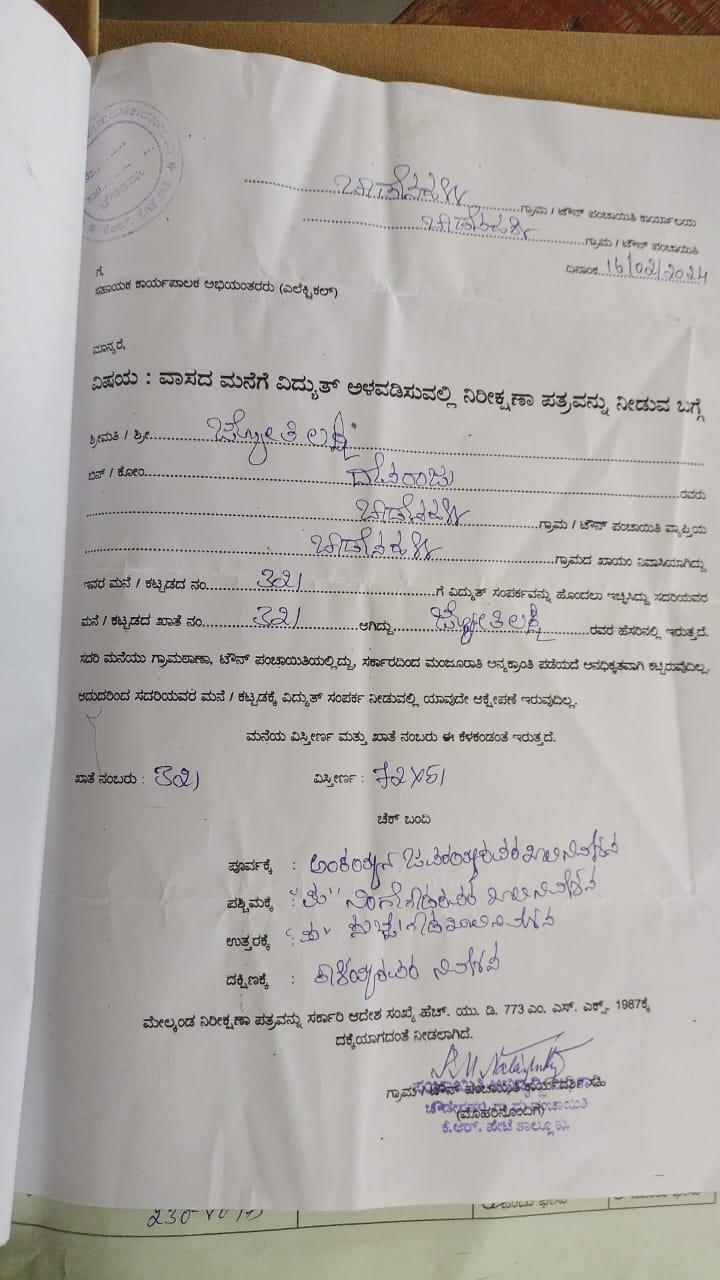 ಚೌಡೇನಹಳ್ಳಿ ಗ್ರಾಮ / ಟೌನ್ ಪಂಚಾಯಿತಿ ಕಾರ್ಯಾಲಯ
ಚೌಡೇನಹಳ್ಳಿ ಗ್ರಾಮ / ಟೌನ್ ಪಂಚಾಯಿತಿ
ದಿನಾಂಕ 16/02/2024
ಗೆ,
ಸಹಾಯಕ ಕಾರ್ಯಪಾಲಕ ಅಭಿಯಂತರರು (ಎಲೆಕ್ಟ್ರಿಕಲ್)
ಮಾನ್ಯರೆ,
ವಿಷಯ : ವಾಸದ ಮನೆಗೆ ವಿದ್ಯುತ್ ಅಳವಡಿಸುವಲ್ಲಿ ನಿರೀಕ್ಷಣಾ ಪತ್ರವನ್ನು ನೀಡುವ ಬಗ್ಗೆ
ಶ್ರೀಮತಿ / ಶ್ರೀ ಜ್ಯೋತಿ ಲಕ್ಷ್ಮಿ
ಬಿನ್ / ಕೋಂ ದೇವರಾಜು ರವರು
ಚೌಡೇನಹಳ್ಳಿ ಗ್ರಾಮ / ಟೌನ್ ಪಂಚಾಯಿತಿ ವ್ಯಾಪ್ತಿಯ
ಚೌಡೇನಹಳ್ಳಿ ಗ್ರಾಮದ ಖಾಯಂ ನಿವಾಸಿಯಾಗಿದ್ದು
ಇವರ ಮನೆ / ಕಟ್ಟಡದ ನಂ. 321 ಗೆ ವಿದ್ಯುತ್ ಸಂಪರ್ಕವನ್ನು ಹೊಂದಲು ಇಚ್ಛಿಸಿದ್ದು ಸದರಿಯವರ
ಮನೆ / ಕಟ್ಟಡದ ಖಾತೆ ನಂ. 321 ಆಗಿದ್ದು ಜ್ಯೋತಿಲಕ್ಷ್ಮಿ ರವರ ಹೆಸರಿನಲ್ಲಿ ಇರುತ್ತದೆ.
ಸದರಿ ಮನೆಯು ಗ್ರಾಮಠಾಣಾ, ಟೌನ್ ಪಂಚಾಯಿತಿಯಲ್ಲಿದ್ದು, ಸರ್ಕಾರದಿಂದ ಮಂಜೂರಾತಿ ಅನ್ಯಕ್ರಾಂತಿ ಪಡೆಯದೆ ಅನಧಿಕೃತವಾಗಿ ಕಟ್ಟಿರುವುದಿಲ್ಲ.
ಆದುದರಿಂದ ಸದರಿಯವರ ಮನೆ / ಕಟ್ಟಡಕ್ಕೆ ವಿದ್ಯುತ್ ಸಂಪರ್ಕ ನೀಡುವಲ್ಲಿ ಯಾವುದೇ ಆಕ್ಷೇಪಣೆ ಇರುವುದಿಲ್ಲ.
ಮನೆಯ ವಿಸ್ತೀರ್ಣ ಮತ್ತು ಖಾತೆ ನಂಬರು ಈ ಕೆಳಕಂಡಂತೆ ಇರುತ್ತದೆ.
ಖಾತೆ ನಂಬರು : 321 ವಿಸ್ತೀರ್ಣ : 72x51
ಚೆಕ್ ಬಂದಿ
ಪೂರ್ವಕ್ಕೆ : ಖಾಲಿ ನಿವೇಶನ
ಪಶ್ಚಿಮಕ್ಕೆ : ನಿಂಗೇಗೌಡರವರ ಖಾಲಿ ನಿವೇಶನ
ಉತ್ತರಕ್ಕೆ : ಖಾಲಿ ನಿವೇಶನ
ದಕ್ಷಿಣಕ್ಕೆ : ಕಾಳಯ್ಯರವರ ನಿವೇಶನ
ಮೇಲ್ಕಂಡ ನಿರೀಕ್ಷಣಾ ಪತ್ರವನ್ನು ಸರ್ಕಾರಿ ಆದೇಶ ಸಂಖ್ಯೆ ಹೆಚ್. ಯು. ಡಿ. 773 ಎಂ. ಎಸ್. ಎಕ್ಸ್. 1987ಕ್ಕೆ
ದಕ್ಕೆಯಾಗದಂತೆ ನೀಡಲಾಗಿದೆ.
ಗ್ರಾಮ / ಟೌನ್ ಪಂಚಾಯಿತಿ ಕಾರ್ಯದರ್ಶಿ ಸಹಿ
(ಮೊಹರಿನೊಂದಿಗೆ)
ಕೆ.ಆರ್. ಪೇಟೆ ತಾಲ್ಲೂಕು.